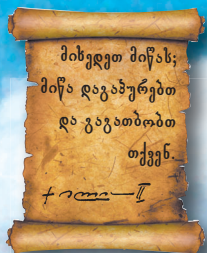 მიხედეთ მიწას;
მიწა დაგაპურებთ
და გაგათბობთ
თქვენ.